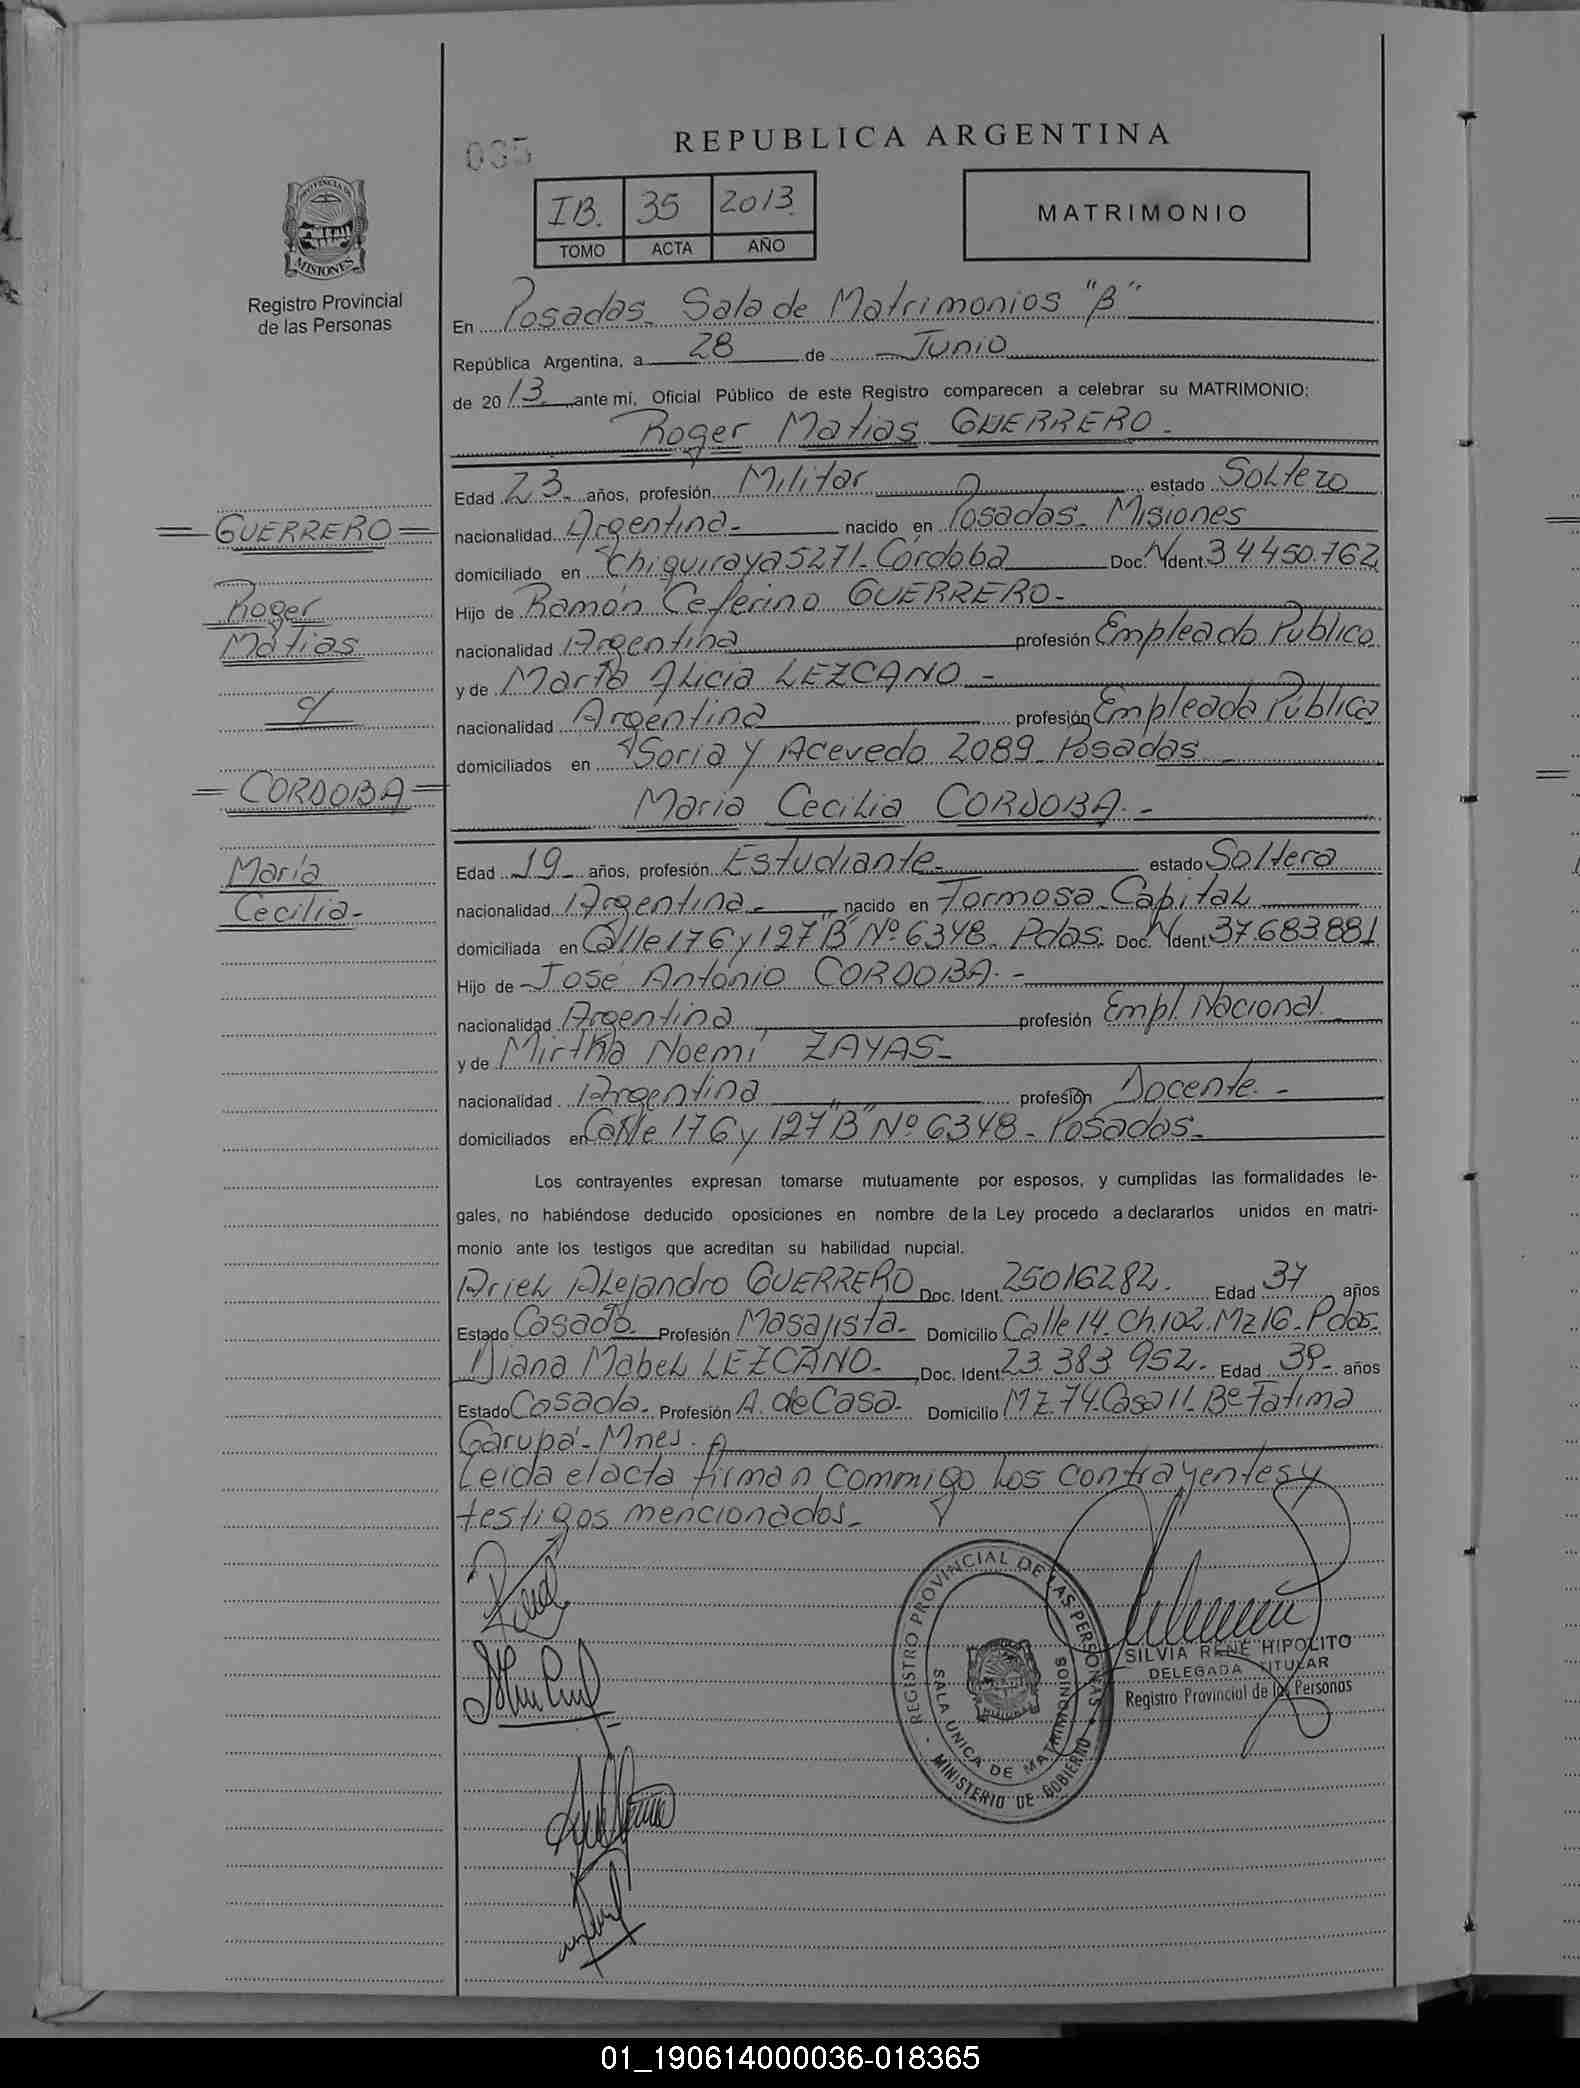 035
REPUBLICA ARGENTINA
IB. 35 2013.
TOMO ACTA AÑO
MATRIMONIO
MISIONES
Registro Provincial
de las Personas
En Posadas - Sala de Matrimonios "B"
República Argentina, a 28 de Junio
de 2013. ante mí, Oficial Público de este Registro comparecen a celebrar su MATRIMONIO:
Roger Matias GUERRERO -
Edad 23 - años, profesión Militar estado Soltero
nacionalidad Argentina - nacido en Posadas - Misiones
domiciliado en Chiquiraya 5271 - Córdoba Doc. Ident. 34450.762
Hijo de Ramón Ceferino GUERRERO -
nacionalidad Argentina profesión Empleado Público
y de Marta Alicia LEZCANO -
nacionalidad Argentina profesión Empleada Pública
domiciliados en Soria y Acevedo 2089 - Posadas -
Maria Cecilia CORDOBA. -
Edad 19 - años, profesión Estudiante - estado Soltera
nacionalidad Argentina - nacido en Formosa - Capital
domiciliada en Calle 176 y 127 "B" Nº 6348 - Pdas. Doc. Ident. 37.683881
Hijo de José Antonio CORDOBA. -
nacionalidad Argentina profesión Empl. Nacional. -
y de Mirtha Noemí ZAYAS -
nacionalidad Argentina profesión Docente. -
domiciliados en Calle 176 y 127 "B" Nº 6348 - Posadas -
Los contrayentes expresan tomarse mutuamente por esposos, y cumplidas las formalidades le-
gales, no habiéndose deducido oposiciones en nombre de la Ley procedo a declararlos unidos en matri-
monio ante los testigos que acreditan su habilidad nupcial.
Ariel Alejandro GUERRERO Doc. Ident. 25016282. Edad 37 años
Estado Casado - Profesión Masajista - Domicilio Calle 14 - Ch. 102 - Mz 16 - Pdas.
Diana Mabel LEZCANO - Doc. Ident. 23.383 952 - Edad 39 - años
Estado Casada - Profesión A. de Casa - Domicilio Mz. 74 - Casa 11 - Bº Fatima
Garupá - Mnes.
Leida el acta firman commigo los contrayentes y
testigos mencionados -
REGISTRO PROVINCIAL DE LAS PERSONAS
SALA UNICA DE MATRIMONIOS
MINISTERIO DE GOBIERNO
SILVIA RENE HIPOLITO
DELEGADA TITULAR
Registro Provincial de las Personas
= GUERRERO =
Roger
Matias
c/
= CORDOBA =
María
Cecilia -
01_190614000036-018365